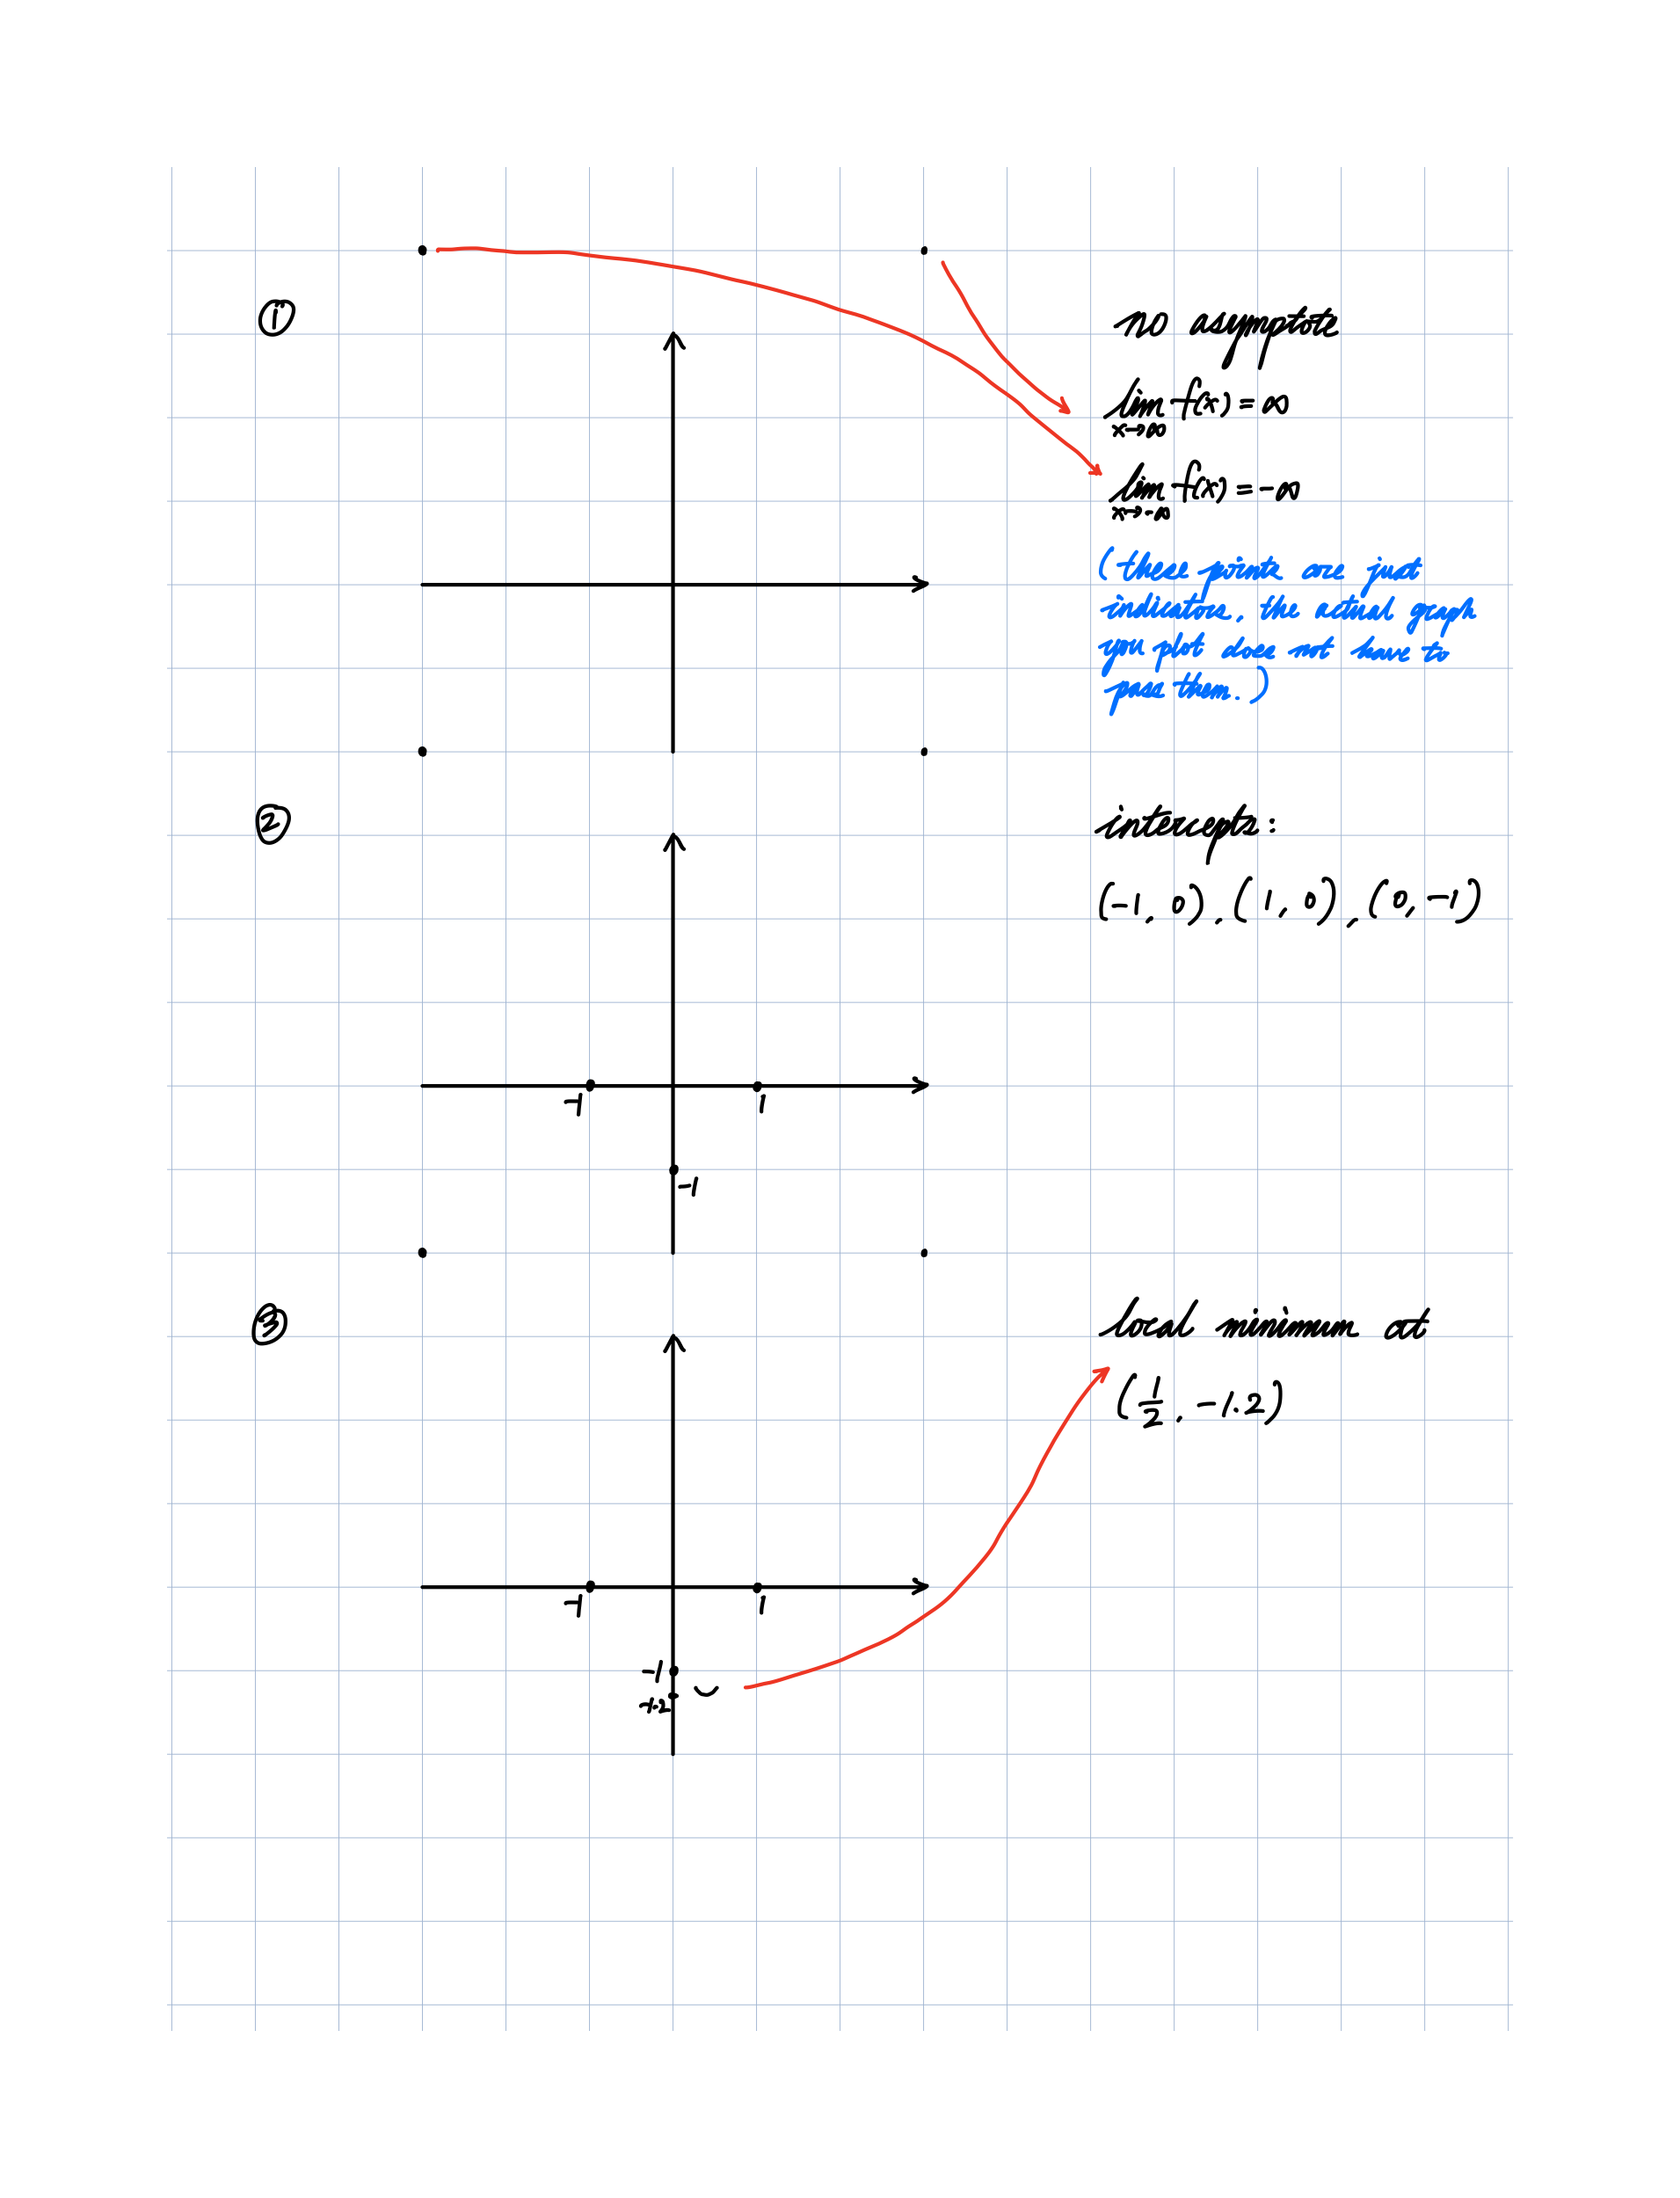 ①
no asymptote
lim f(x) = ∞
x→∞
lim f(x) = -∞
x→-∞
(these points are just
indicators, the actual graph
you plot does not have to
pass them.)
②
intercepts:
(-1, 0), (1, 0), (0, -1)
-1
1
-1
③
local minimum at
(1/2, -1.2)
-1
1
-1
-1.2